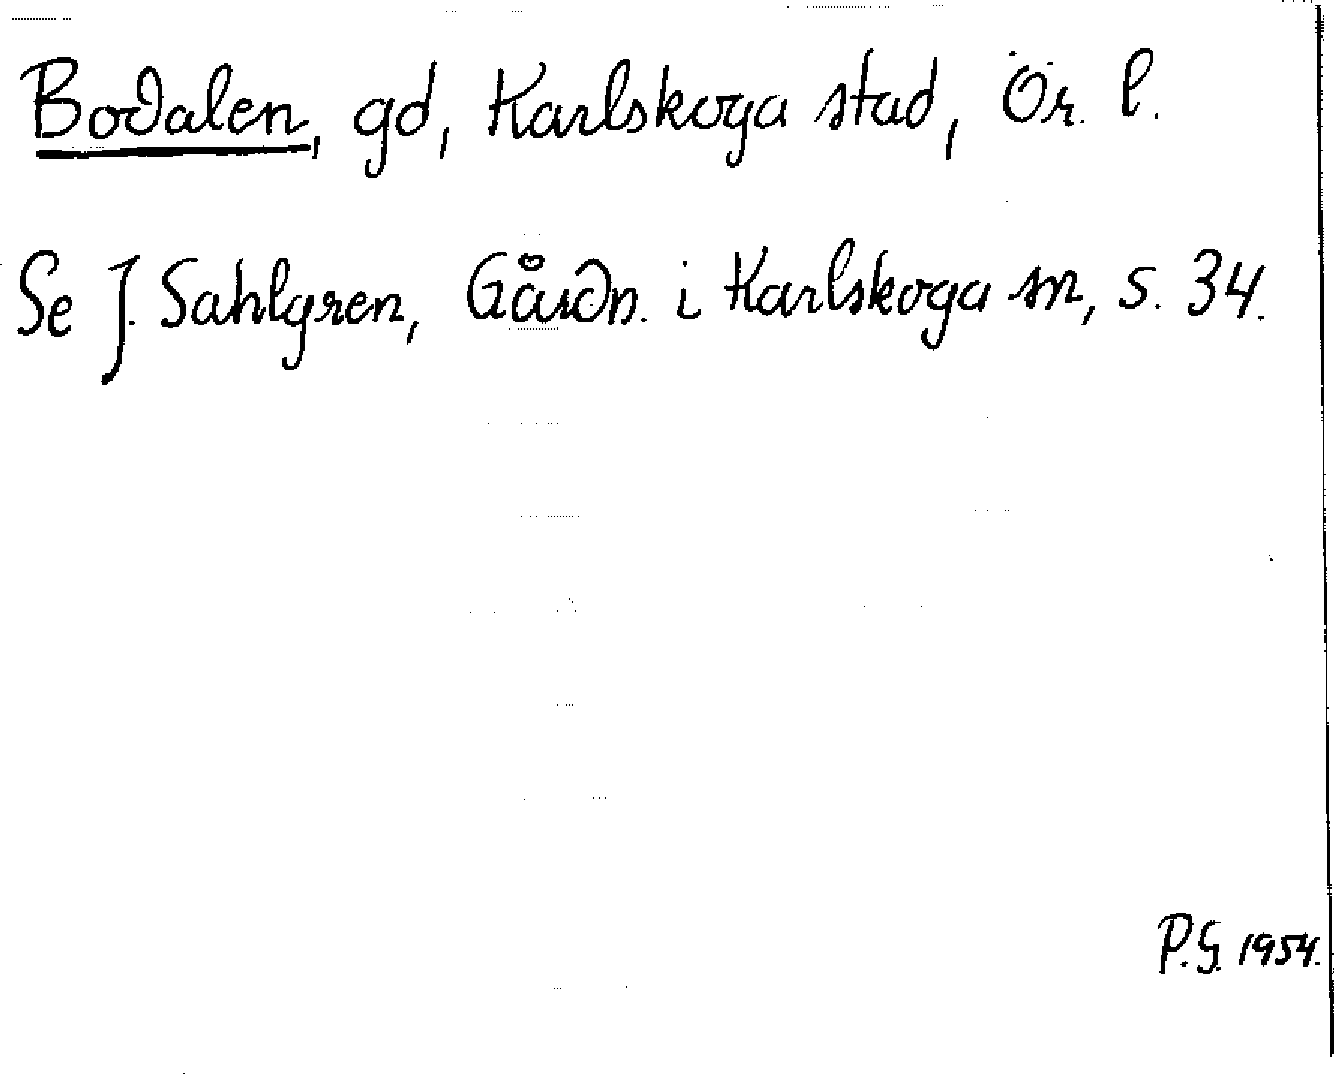 Bodalen, gd, Karlskoga stad, Ör. l.
Se J. Sahlgren, Gårdn. i Karlskoga sn, s. 34.
P.G. 1954.